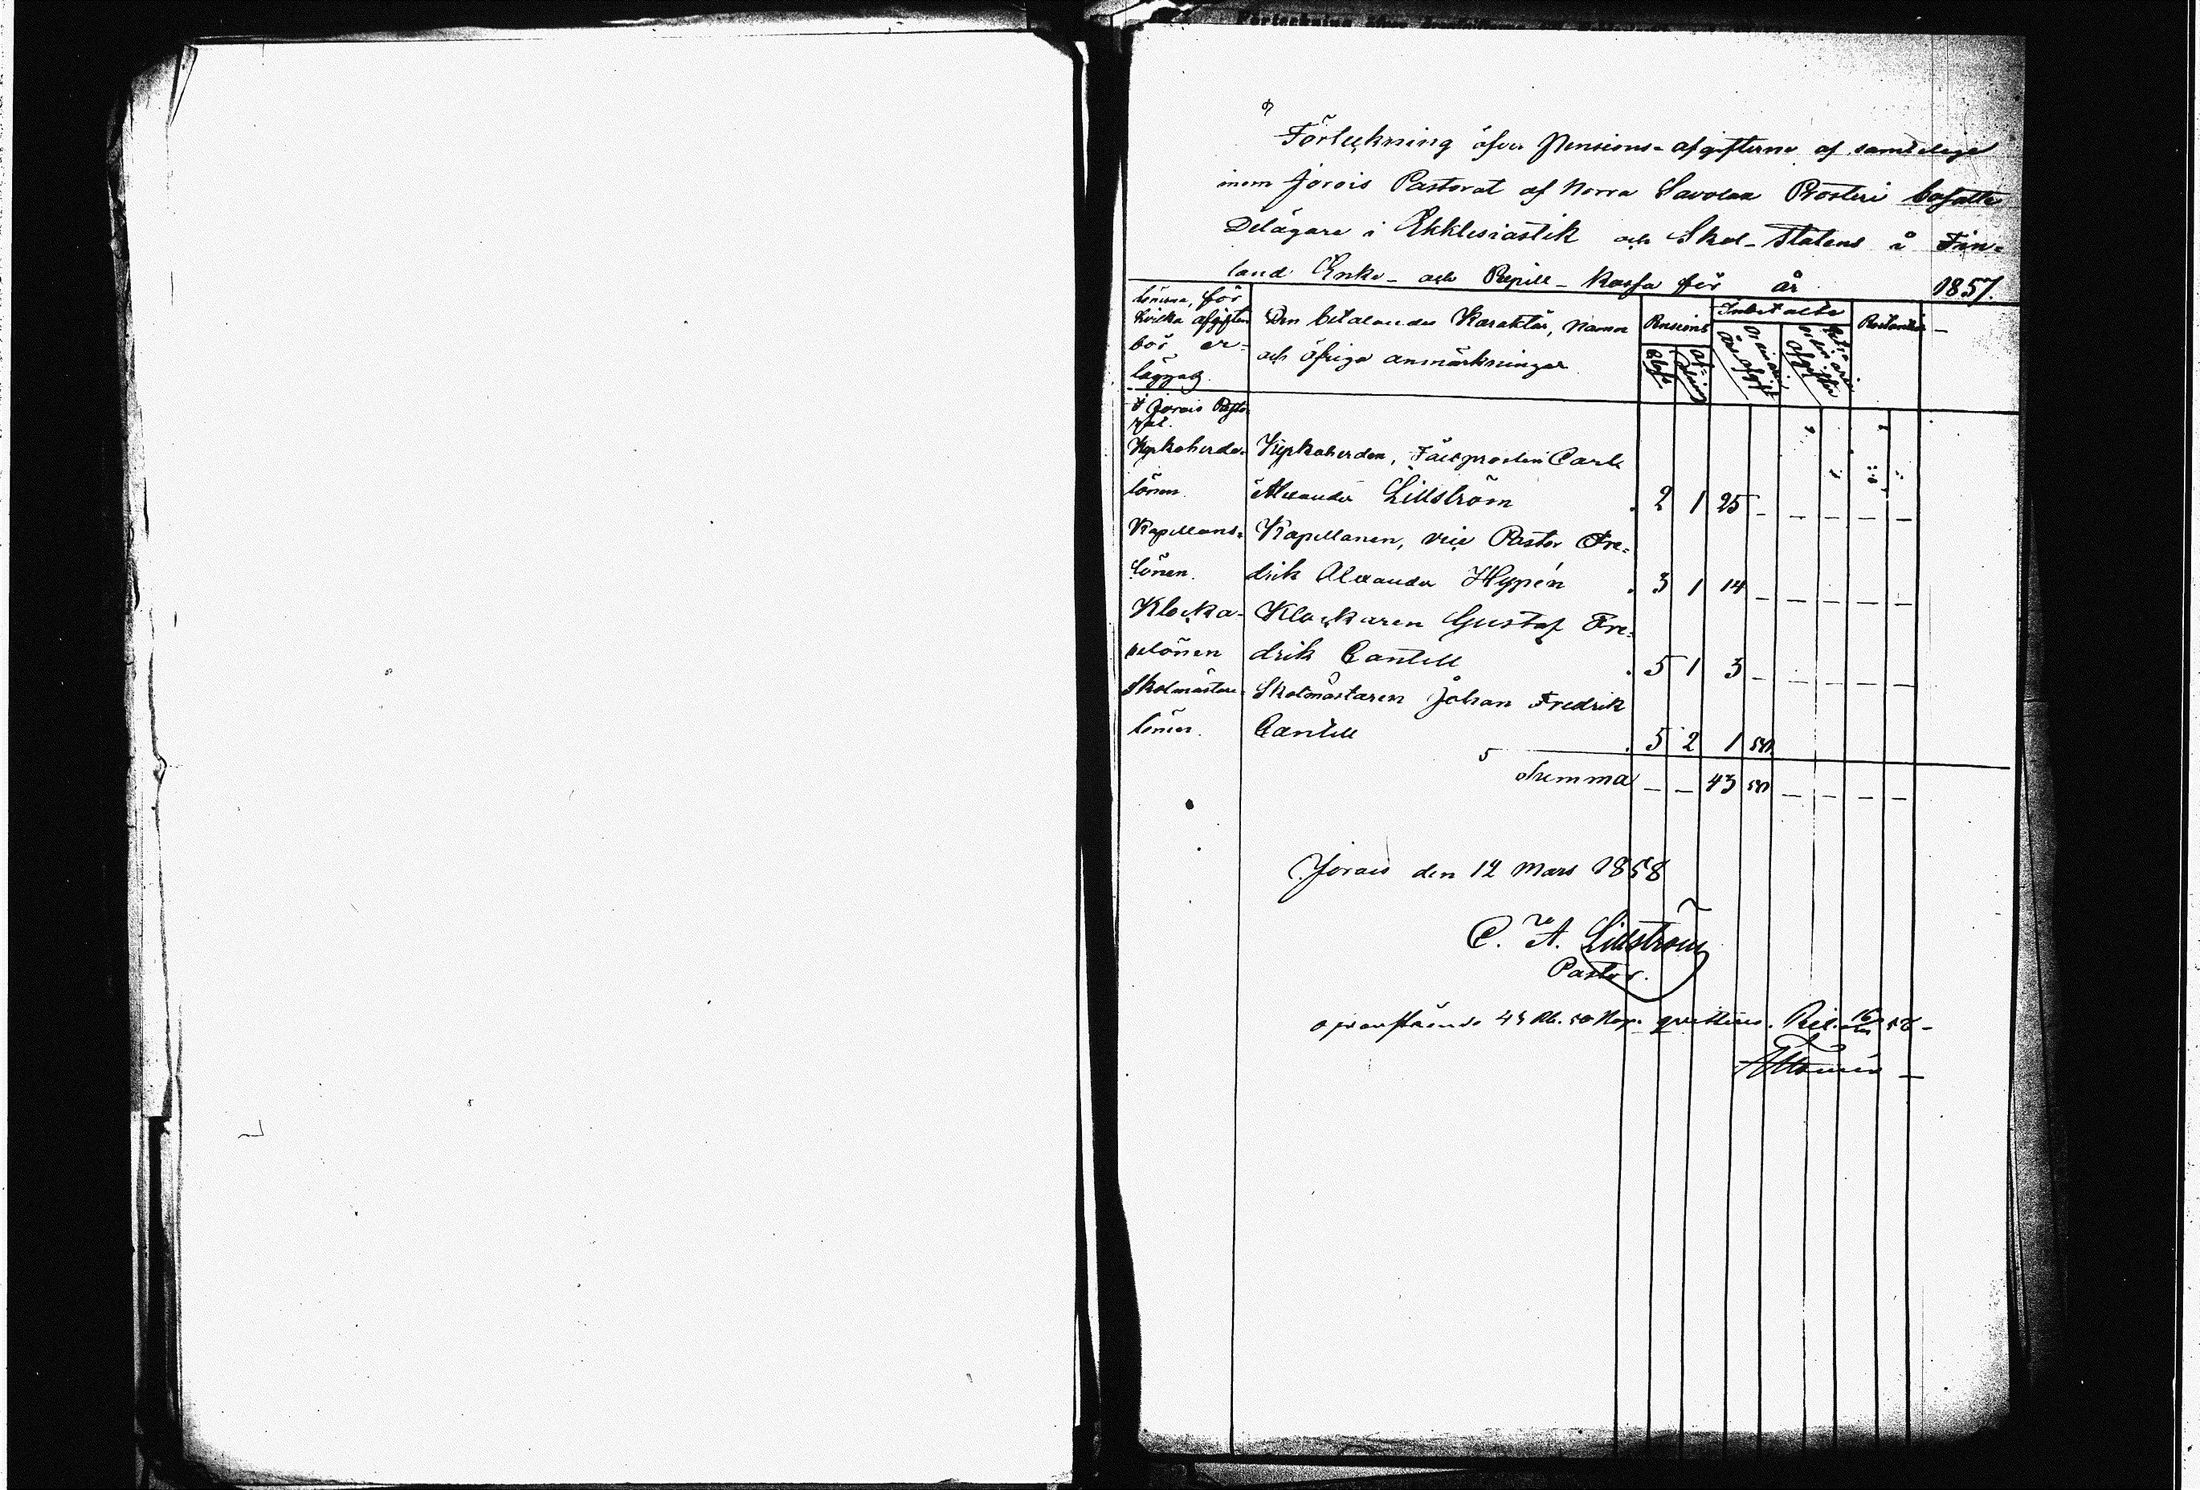 Förteckning öfver Pensions-afgifterne af samtelige
inom Jorois Pastorat af Norra Savolax Prosteri bosatte
Delägare i Ekklesiastik och Skol-Statens i Fin-
land Enke- och Pupill-Kassa för år 1857.
lönerna, för
hvilka afgiften
bör er-
läggas.
Den betalandes Karaktär, Namn
och öfriga anmärkningar
Pensions
Klass
Inbetalte
Restantier
I Jorois Pasto-
rat.
Kyrkoherde-
lönen.
Kyrkoherden, Fältprosten Carl
Alexander Lillström 2 1 25 – – – – –
Kapellans-
lönen.
Kapellanen, vice Pastor Fre-
drik Alexander Hypén 3 1 14 – – – – –
Klocka-
relönen
Klockaren Gustaf Fre-
drik Cantell 5 1 3 – – – – –
Skolmästare-
lönen.
Skolmästaren Johan Fredrik
Cantell 5 2 1 50
Summa – – 43 50 – – – –
Jorois den 12 Mars 1858
C. A. Lillström
Pastor.
ofvanstående 43 Rb. 50 Kop. qvitteras.